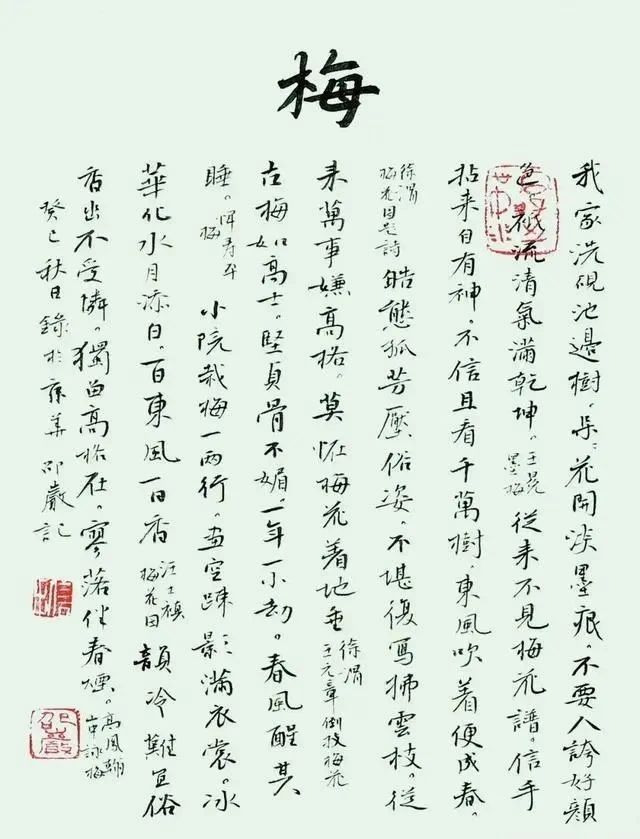 梅
我家洗硯池邊樹，朶〻花開淡墨痕。不要人誇好顏
色，祇流清氣滿乾坤。王冕墨梅 從来不見梅花譜。信手
拈来自有神。不信且看千萬樹，東風吹着便成春。
徐渭梅花図題詩 皓態孤芳壓俗姿。不堪復寫拂雲枝。從
来萬事嫌高格。莫怪梅花着地垂 徐渭王元章倒枝梅花
古梅如高士。堅貞骨不媚。一年一小劫。春風醒其
睡。惲壽平梅 小院栽梅一兩行。畫空疎影滿衣裳。冰
華化水月添白。一日東風一日香 汪士梅花図 韻冷難宜俗
香出不受憐。獨留高格在。寥落伴春煙。高鳳翰山中詠梅
癸巳秋日錄於京華 邵巖記
邵巖